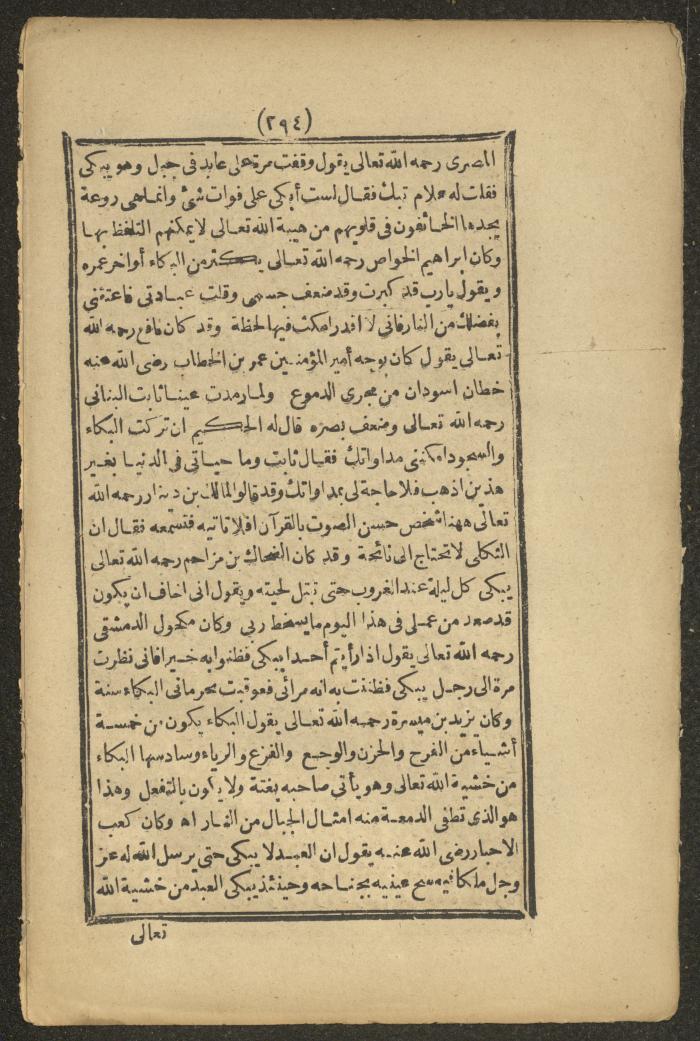 (٢٩٤)
المصرى رحمه الله تعالى يقول وقفت مرة على عابد فى جبل وهو يبكى
فقلت له علام تبك فقال لست أبكى على فوات شئ وانما هى روعة
يجدها الخائفون فى قلوبهم من هيبة الله تعالى لا يمكنهم التلفظ بها
وكان ابراهيم الخواص رحمه الله تعالى يكثر من البكاء أواخر عمره
ويقول يارب قد كبرت وقد ضعف جسمى وقلت عبادتى فاعتقنى
بفضلك من النار فانى لا أقدر امكث فيها لحظة وقد كان نافع رحمه الله
تعالى يقول كان بوجه أمير المؤمنين عمر بن الخطاب رضى الله عنه
خطان اسودان من مجرى الدموع ولما رمدت عينا ثابت البنانى
رحمه الله تعالى وضعف بصره قال له الحكيم ان تركت البكاء
والسجود امكننى مداواتك فقال ثابت وما حياتى فى الدنيا بغير
هذين اذهب فلا حاجة لى بمداواتك وقد قالوا لمالك بن دينار رحمه الله
تعالى ههنا شخص حسن الصوت بالقرآن افلا تاتيه فتسمعه فقال ان
الثكلى لا تحتاج الى نائحة وقد كان الضحاك بن مزاحم رحمه الله تعالى
يبكى كل ليلة عند الغروب حتى تبتل لحيته ويقول انى اخاف ان يكون
قد صعد من عملى فى هذا اليوم ما يسخط ربى وكان مكحول الدمشقى
رحمه الله تعالى يقول اذا رأيتم أحدا يبكى فظنوا به خيرا فانى نظرت
مرة الى رجل يبكى فظننت به انه مرائى فعوقبت بحرمانى البكاء سنة
وكان يزيد بن ميسرة رحمه الله تعالى يقول البكاء يكون من خمسة
أشياء من الفرح والحزن والوجع والفزع والرياء وسادسها البكاء
من خشية الله تعالى وهو يأتى صاحبه بغتة ولا يكون بالتفعل وهذا
هو الذى تطفى الدمعة منه امثال الجبال من النار اه وكان كعب
الاحبار رضى الله عنه يقول ان العبد لا يبكى حتى يرسل الله له عز
وجل ملكا فيمسح عينيه بجناحه وحينئذ يبكى العبد من خشية الله
تعالى